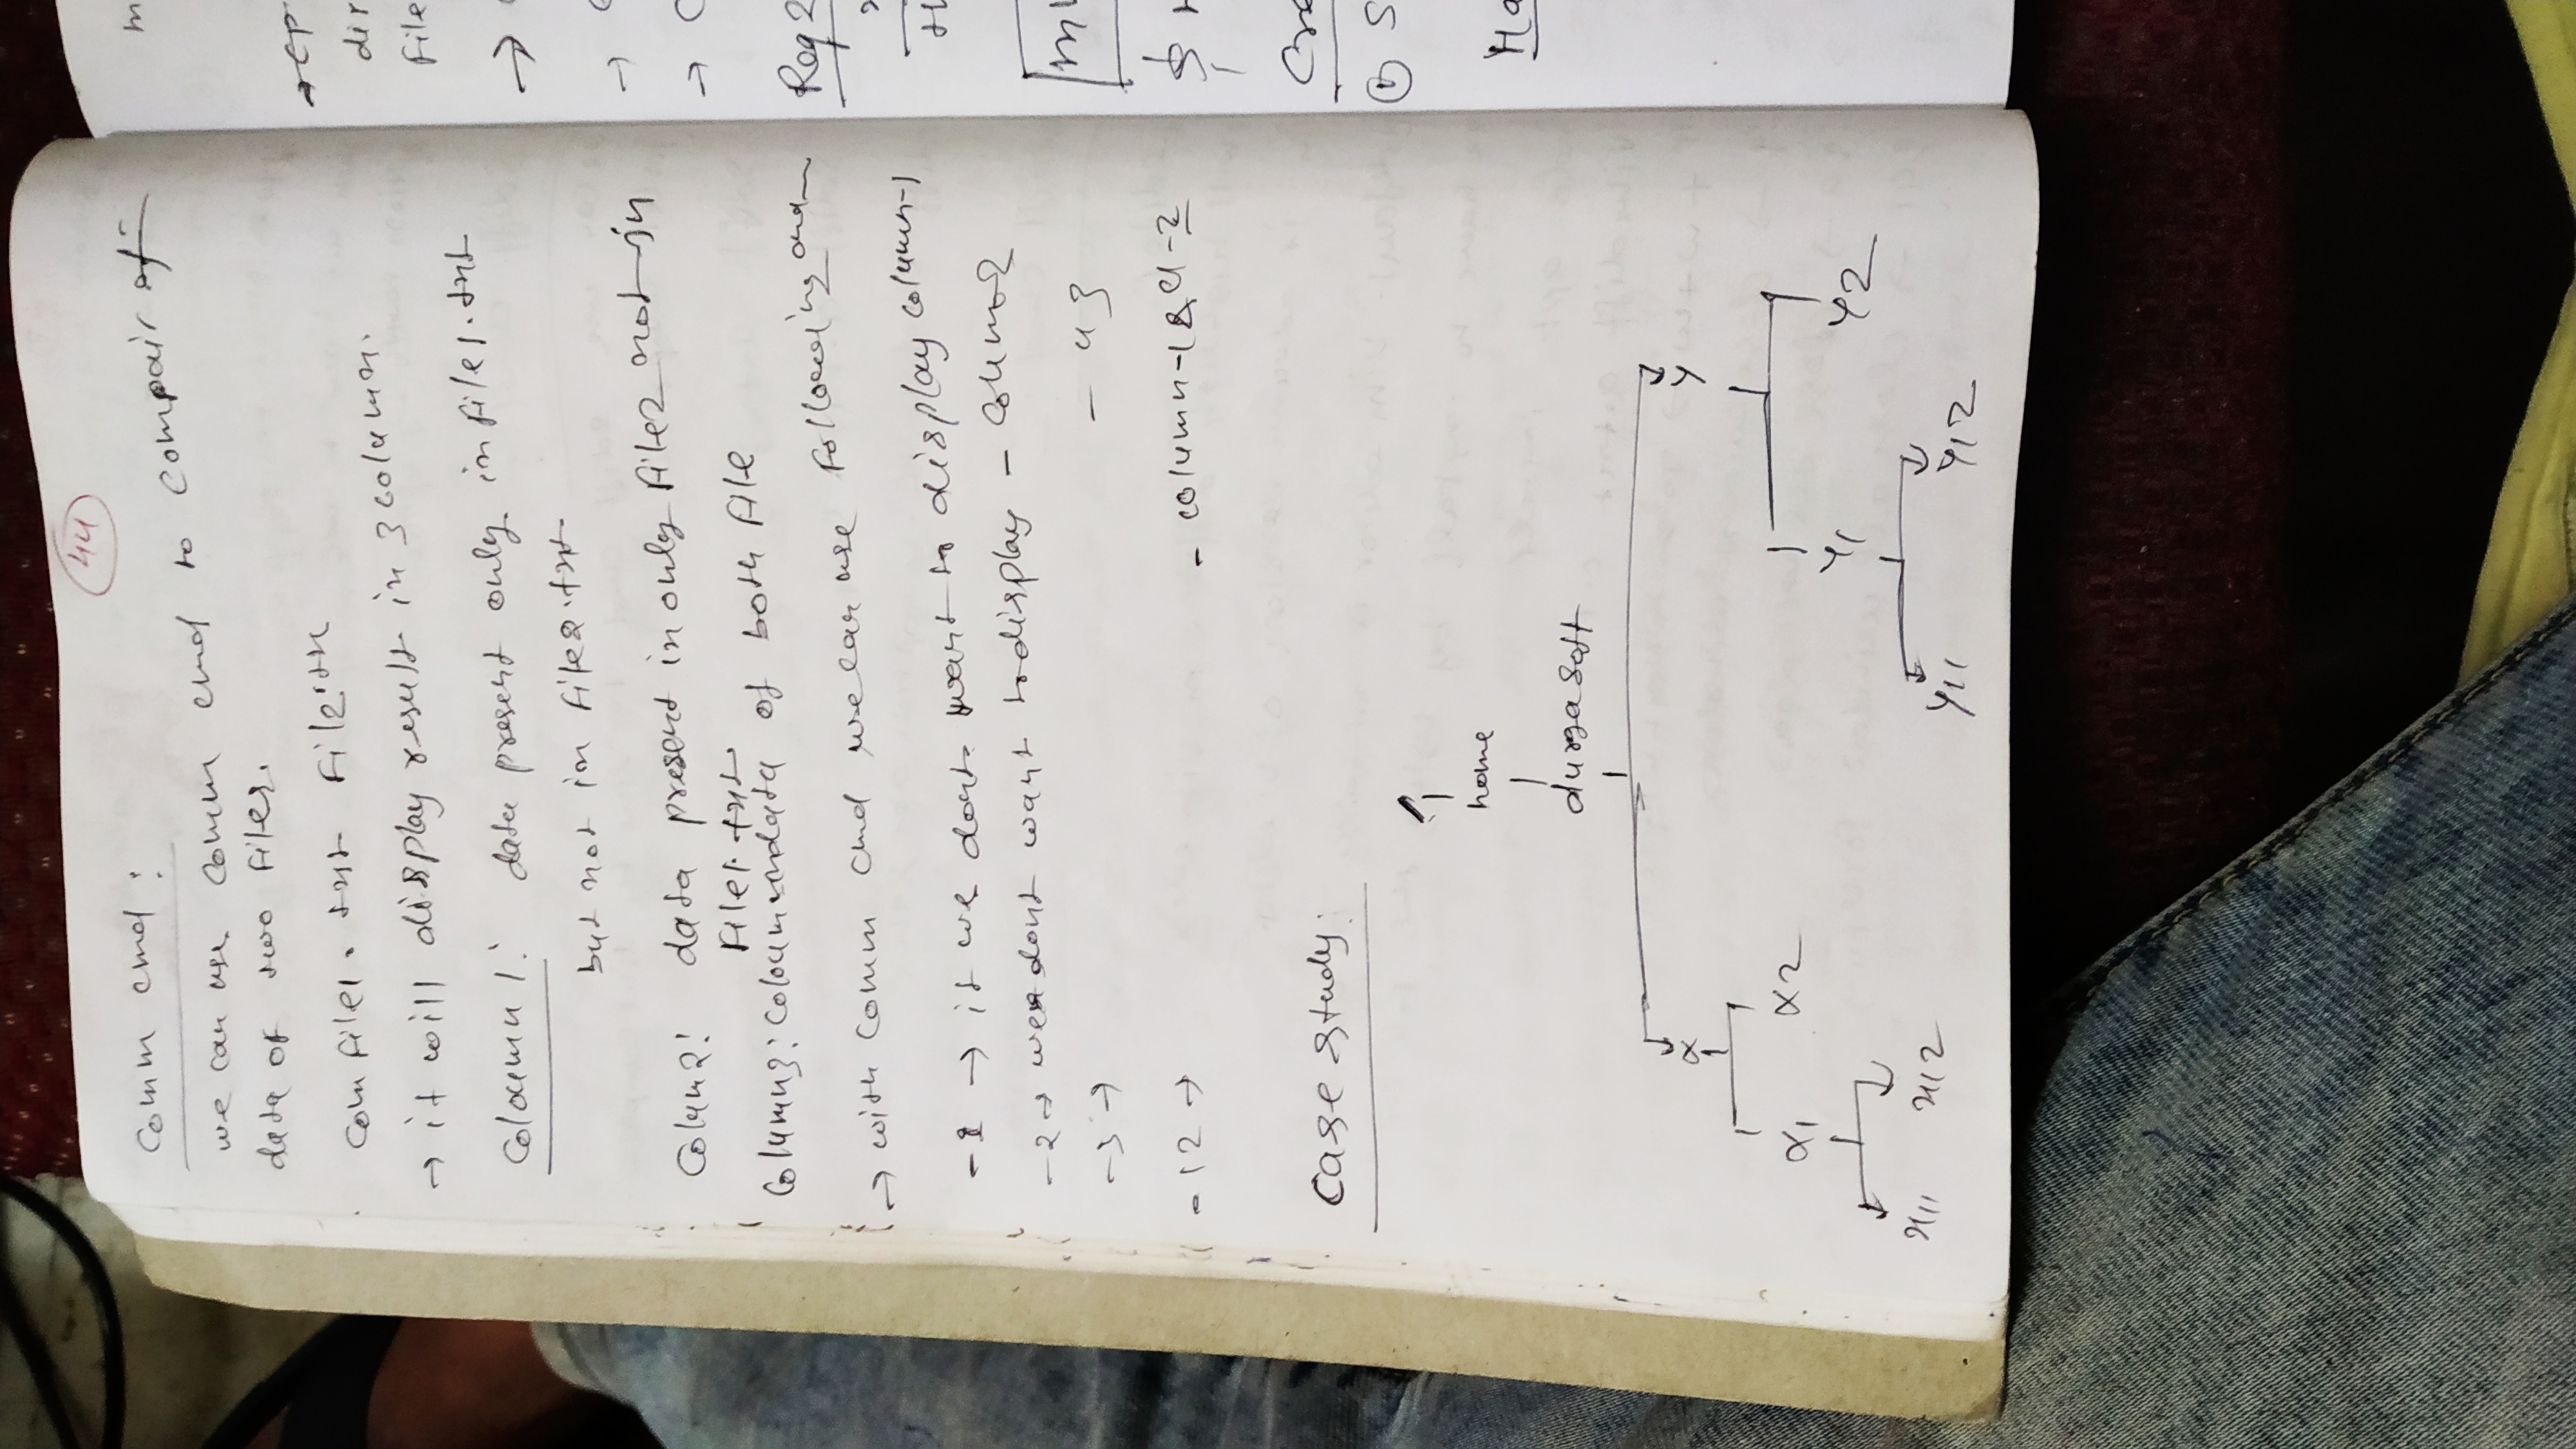 44
Comm cmd :
we can use comm cmd to compair of
data of two files.
Com file1. txt Fil2.txt
→ it will display result in 3 column.
Coloumn 1: data present only in file1.txt
but not in file2.txt
Colum2: data present in only file2 not in
File1.txt
Column3: data of both file
→ with comm cmd we can use following
-1 → if we dont want to display column-1
-2 → we dont want to display - Colum-2
-3 → - " 3
-12 → - column-1 & " - 2
Case study:
/
home
durgasoft
x y
x1 x2
y1 y2
x11 x12
y11 y12
m
→ cp
dir
file
→
→
→
Req 2
Cre
① S
Ha